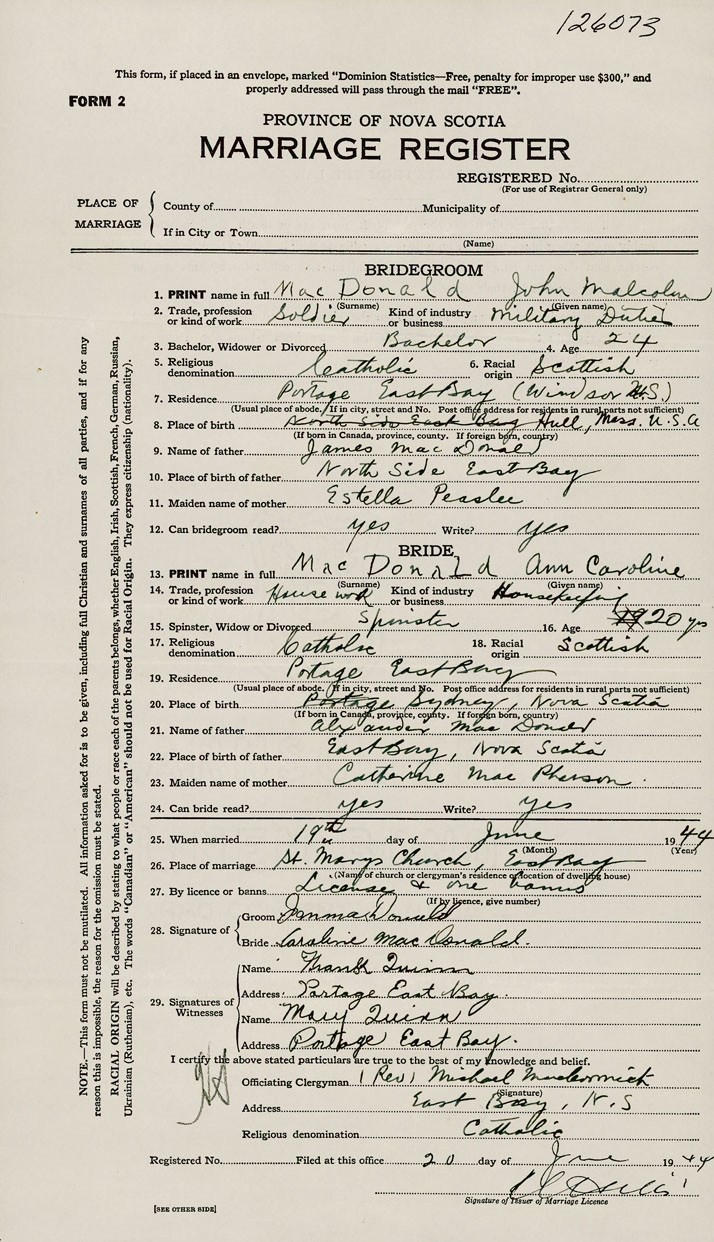 126073
This form, if placed in an envelope, marked "Dominion Statistics—Free, penalty for improper use $300," and
properly addressed will pass through the mail "FREE".
FORM 2
PROVINCE OF NOVA SCOTIA
MARRIAGE REGISTER
REGISTERED No.
(For use of Registrar General only)
PLACE OF MARRIAGE
County of Municipality of
If in City or Town
(Name)
BRIDEGROOM
1. PRINT name in full MacDonald John Malcolm
(Surname) (Given name)
2. Trade, profession or kind of work Soldier Kind of industry or business Military Duties
3. Bachelor, Widower or Divorced Bachelor 4. Age 24
5. Religious denomination Catholic 6. Racial origin Scottish
7. Residence Portage East Bay (Windsor N.S.)
(Usual place of abode. If in city, street and No. Post office address for residents in rural parts not sufficient)
8. Place of birth North Side East Bay Hull, Mass. U.S.A
(If born in Canada, province, county. If foreign born, country)
9. Name of father James MacDonald
10. Place of birth of father North Side East Bay
11. Maiden name of mother Estella Peaslee
12. Can bridegroom read? yes Write? yes
BRIDE
13. PRINT name in full MacDonald Ann Caroline
(Surname) (Given name)
14. Trade, profession or kind of work House work Kind of industry or business Housekeeping
15. Spinster, Widow or Divorced Spinster 16. Age 20 yrs
17. Religious denomination Catholic 18. Racial origin Scottish
19. Residence Portage East Bay
(Usual place of abode. If in city, street and No. Post office address for residents in rural parts not sufficient)
20. Place of birth Portage Sydney, Nova Scotia
(If born in Canada, province, county. If foreign born, country)
21. Name of father Alexander MacDonald
22. Place of birth of father East Bay, Nova Scotia
23. Maiden name of mother Catherine MacPherson
24. Can bride read? yes Write? yes
25. When married 19th day of June 1944
(Month) (Year)
26. Place of marriage St. Marys Church, East Bay
(Name of church or clergyman's residence or location of dwelling house)
27. By licence or banns License & one banns
(If by licence, give number)
28. Signature of
Groom J M MacDonald
Bride Caroline MacDonald.
29. Signatures of Witnesses
Name Frank Quinn
Address Portage East Bay.
Name Mary Quinn
Address Portage East Bay.
I certify the above stated particulars are true to the best of my knowledge and belief.
Officiating Clergyman (Rev) Michael MacCormick
(Signature)
Address East Bay, N.S
Religious denomination Catholic
Registered No. Filed at this office 20 day of June 1944
Signature of Issuer of Marriage Licence
[SEE OTHER SIDE]
NOTE.—This form must not be mutilated. All information asked for is to be given, including full Christian and surnames of all parties, and if for any
reason this is impossible, the reason for the omission must be stated.
RACIAL ORIGIN will be described by stating to what people or race each of the parents belongs, whether English, Irish, Scottish, French, German, Russian,
Ukrainian (Ruthenian), etc. The words "Canadian" or "American" should not be used for Racial Origin. They express citizenship (nationality).